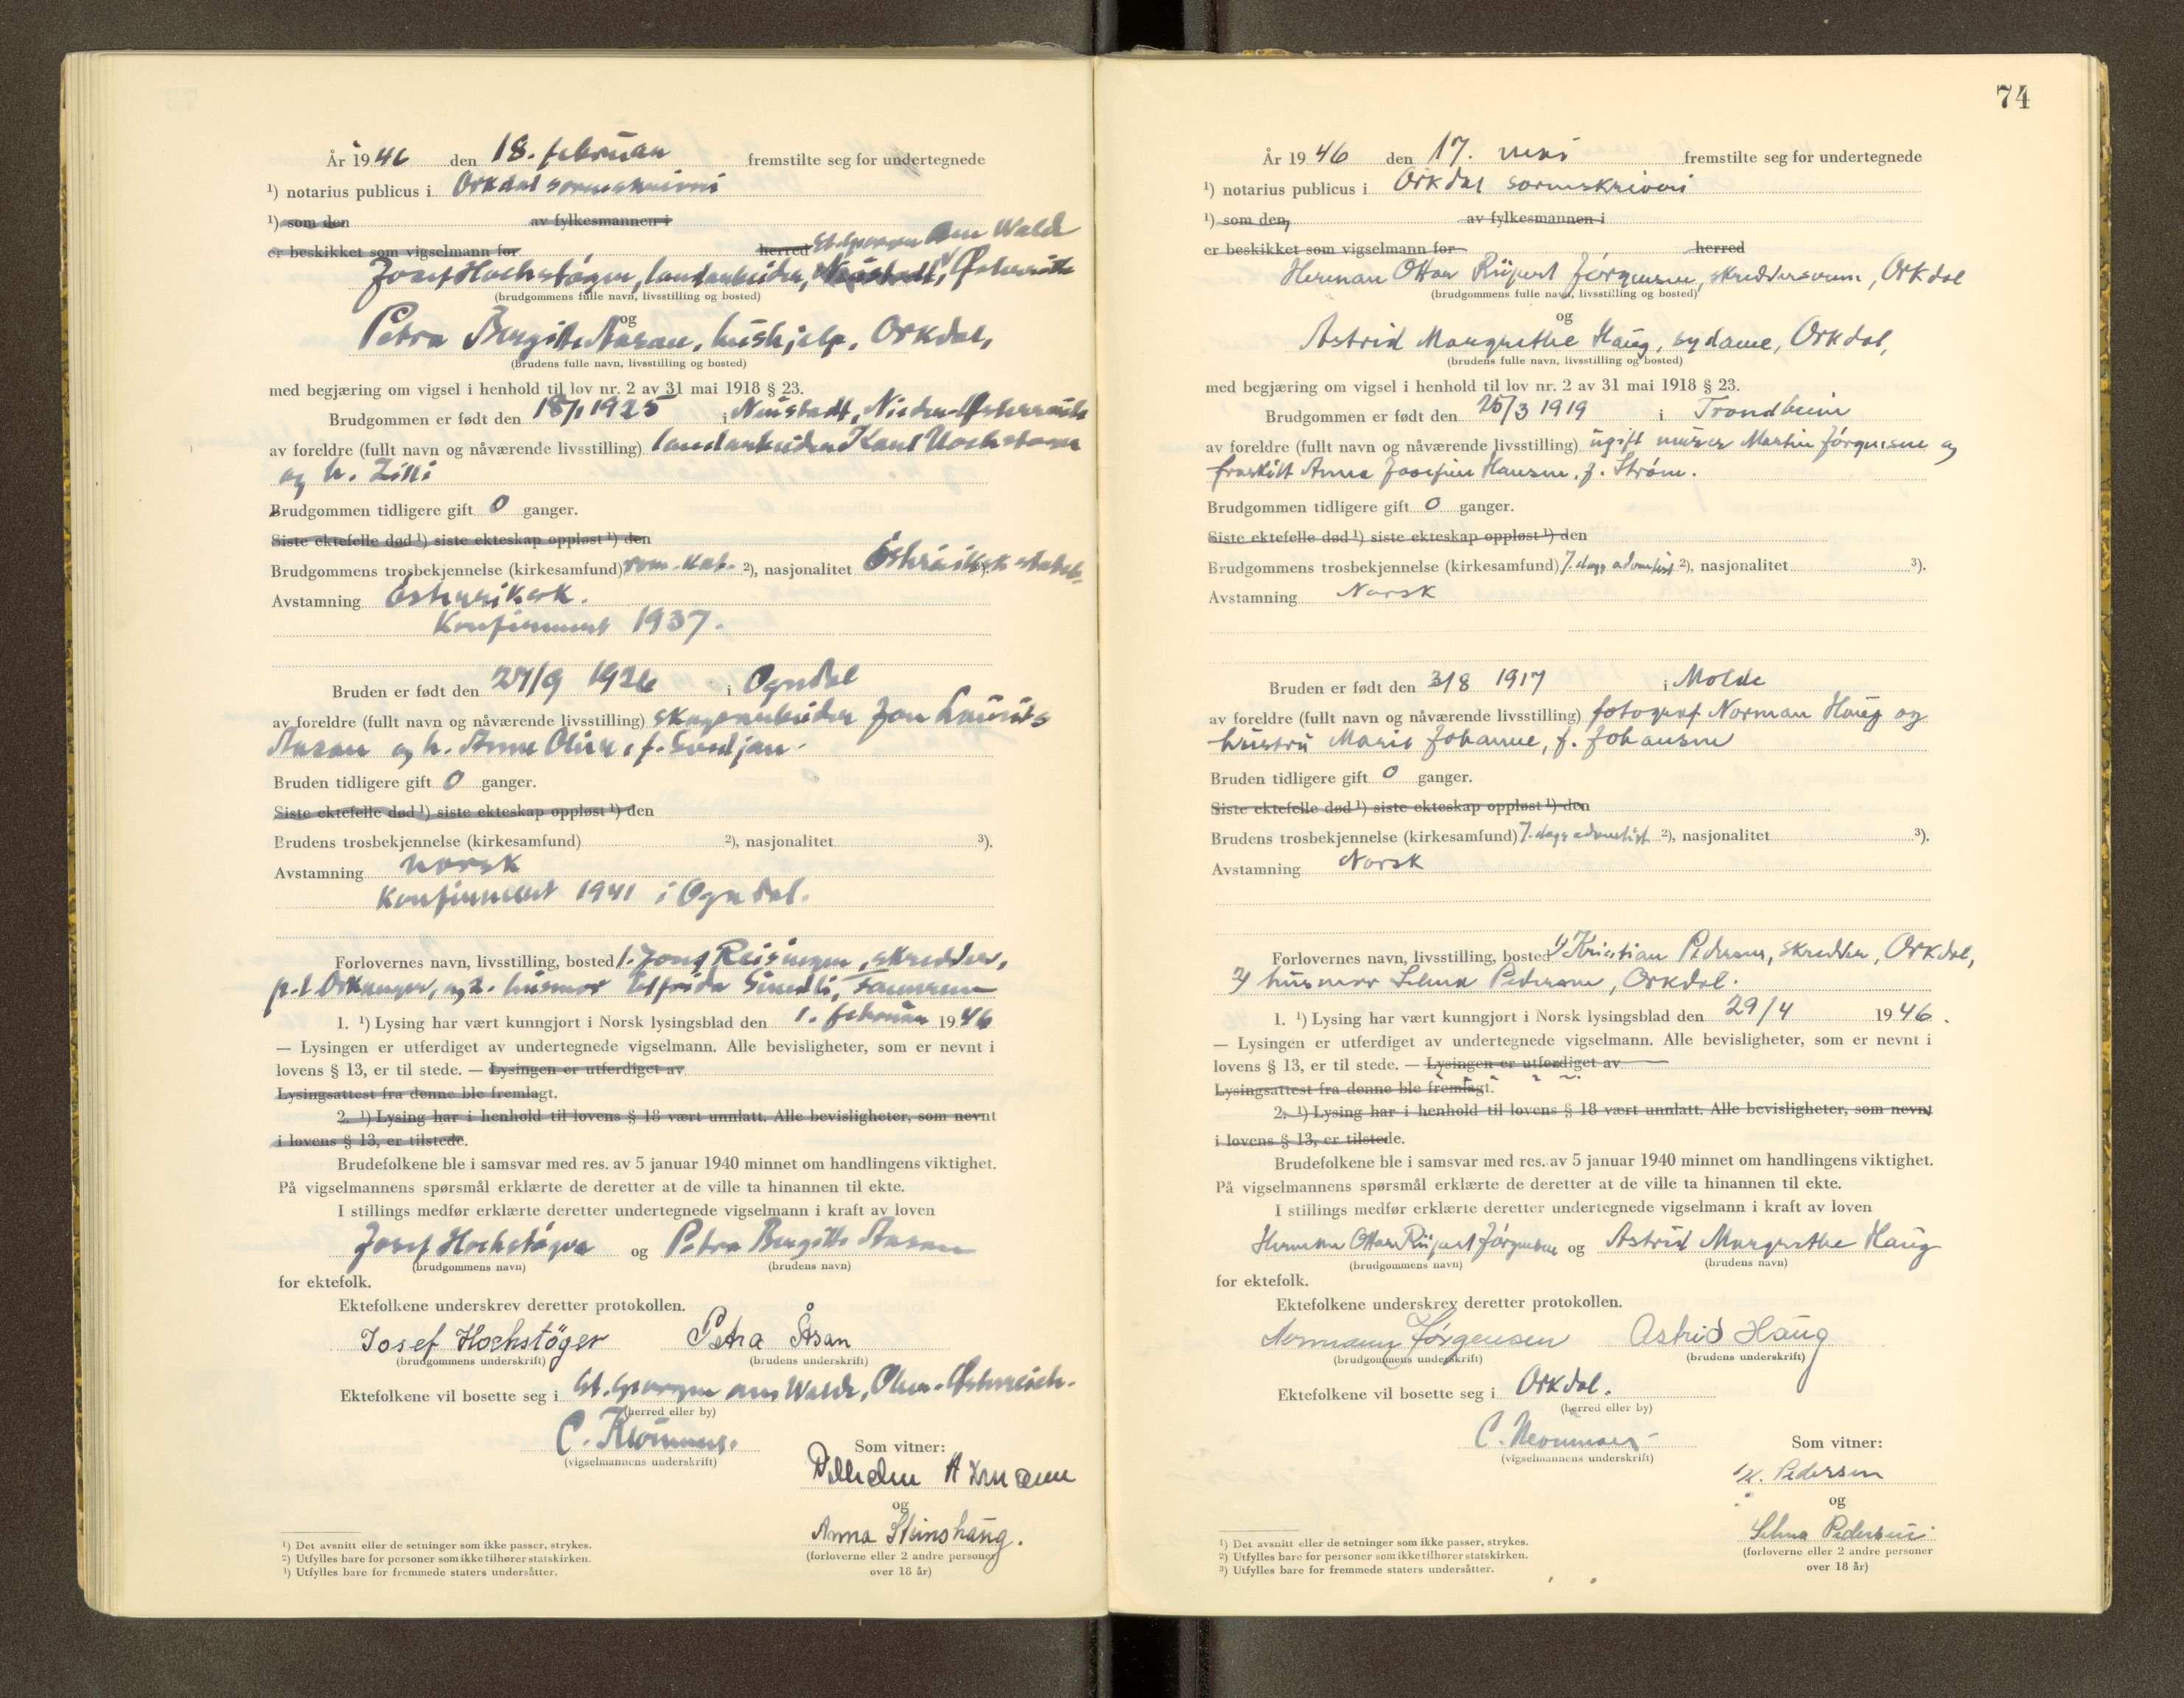 År 1946 den 18. februar fremstilte seg for undertegnede
¹) notarius publicus i Orkdal sorenskriveri
¹) som den av fylkesmannen i
er beskikket som vigselmann for herred St. Georgen Am Walde
Josef Hochstöger, landarbeider, Neustadt, Østerrike
(brudgommens fulle navn, livsstilling og bosted)
og
Petra Bergitte Aasan, hushjelp, Orkdal,
(brudens fulle navn, livsstilling og bosted)
med begjæring om vigsel i henhold til lov nr. 2 av 31 mai 1918 § 23.
Brudgommen er født den 18/1 1925 i Neustadt, Nieder-Østerreich
av foreldre (fullt navn og nåværende livsstilling) landarbeider Karl Hochstöger
og h. Zilli
Brudgommen tidligere gift 0 ganger.
Siste ektefelle død ¹) siste ekteskap oppløst ¹) den
Brudgommens trosbekjennelse (kirkesamfund) rom. kat. ²), nasjonalitet
Avstamning
Konfirmert 1937.
Bruden er født den 27/9 1926 i Ogndal
av foreldre (fullt navn og nåværende livsstilling) skogsarbeider Jon Laurits
Aasan og h. Anne Oline, f.
Bruden tidligere gift 0 ganger.
Siste ektefelle død ¹) siste ekteskap oppløst ¹) den
Brudens trosbekjennelse (kirkesamfund) ²), nasjonalitet ³).
Avstamning norsk
Konfirmert 1941 i Ogndal.
Forlovernes navn, livsstilling, bosted 1. Josef Reisinger, skredder,
p.t. Orkanger, og 2. husmor
1. ¹) Lysing har vært kunngjort i Norsk lysingsblad den 1. februar 1946
— Lysingen er utferdiget av undertegnede vigselmann. Alle bevisligheter, som er nevnt i
lovens § 13, er til stede. — Lysingen er utferdiget av
Lysingsattest fra denne ble fremlagt.
2. ¹) Lysing har i henhold til lovens § 18 vært unnlatt. Alle bevisligheter, som nevnt
i lovens § 13, er tilstede.
Brudefolkene ble i samsvar med res. av 5 januar 1940 minnet om handlingens viktighet.
På vigselmannens spørsmål erklærte de deretter at de ville ta hinannen til ekte.
I stillings medfør erklærte deretter undertegnede vigselmann i kraft av loven
Josef Hochstöger og Petra Bergitte Aasan
(brudgommens navn) (brudens navn)
for ektefolk.
Ektefolkene underskrev deretter protokollen.
Josef Hochstöger Petra Åsan
(brudgommens underskrift) (brudens underskrift)
Ektefolkene vil bosette seg i St. Georgen am Walde, Ober-Østerreich.
(herred eller by)
C.
(vigselmannens underskrift)
Som vitner:
og
Anna Steinshaug.
(forloverne eller 2 andre personer
over 18 år)
¹) Det avsnitt eller de setninger som ikke passer, strykes.
²) Utfylles bare for personer som ikke tilhører statskirken.
³) Utfylles bare for fremmede staters undersåtter.
74
År 1946 den 17. mai fremstilte seg for undertegnede
¹) notarius publicus i Orkdal sorenskriveri
¹) som den av fylkesmannen i
er beskikket som vigselmann for herred
Herman Ottar Rupert Jørgensen, skreddersvenn, Orkdal
(brudgommens fulle navn, livsstilling og bosted)
og
Astrid Margrethe Haug, sydame, Orkdal,
(brudens fulle navn, livsstilling og bosted)
med begjæring om vigsel i henhold til lov nr. 2 av 31 mai 1918 § 23.
Brudgommen er født den 25/3 1919 i Trondheim
av foreldre (fullt navn og nåværende livsstilling) ugift murer Martin Jørgensen og
fraskilt Anna Josefine Hansen, f. Strøm.
Brudgommen tidligere gift 0 ganger.
Siste ektefelle død ¹) siste ekteskap oppløst ¹) den
Brudgommens trosbekjennelse (kirkesamfund) 7. dags adventist ²), nasjonalitet ³).
Avstamning Norsk
Bruden er født den 3/8 1917 i Molde
av foreldre (fullt navn og nåværende livsstilling) fotograf Norman Haug og
hustru Marie Johanne, f. Johansen
Bruden tidligere gift 0 ganger.
Siste ektefelle død ¹) siste ekteskap oppløst ¹) den
Brudens trosbekjennelse (kirkesamfund) 7. dags adventist ²), nasjonalitet ³).
Avstamning Norsk
Forlovernes navn, livsstilling, bosted 1) Kristian Pedersen, skredder, Orkdal,
2) husmor Selma Pedersen, Orkdal.
1. ¹) Lysing har vært kunngjort i Norsk lysingsblad den 29/4 1946.
— Lysingen er utferdiget av undertegnede vigselmann. Alle bevisligheter, som er nevnt i
lovens § 13, er til stede. — Lysingen er utferdiget av
Lysingsattest fra denne ble fremlagt.
2. ¹) Lysing har i henhold til lovens § 18 vært unnlatt. Alle bevisligheter, som nevnt
i lovens § 13, er tilstede.
Brudefolkene ble i samsvar med res. av 5 januar 1940 minnet om handlingens viktighet.
På vigselmannens spørsmål erklærte de deretter at de ville ta hinannen til ekte.
I stillings medfør erklærte deretter undertegnede vigselmann i kraft av loven
Herman Ottar Rupert Jørgensen og Astrid Margrethe Haug
(brudgommens navn) (brudens navn)
for ektefolk.
Ektefolkene underskrev deretter protokollen.
Hermann Jørgensen Astrid Haug
(brudgommens underskrift) (brudens underskrift)
Ektefolkene vil bosette seg i Orkdal.
(herred eller by)
C.
(vigselmannens underskrift)
Som vitner:
K. Pedersen
og
Selma Pedersen
(forloverne eller 2 andre personer
over 18 år)
¹) Det avsnitt eller de setninger som ikke passer, strykes.
²) Utfylles bare for personer som ikke tilhører statskirken.
³) Utfylles bare for fremmede staters undersåtter.